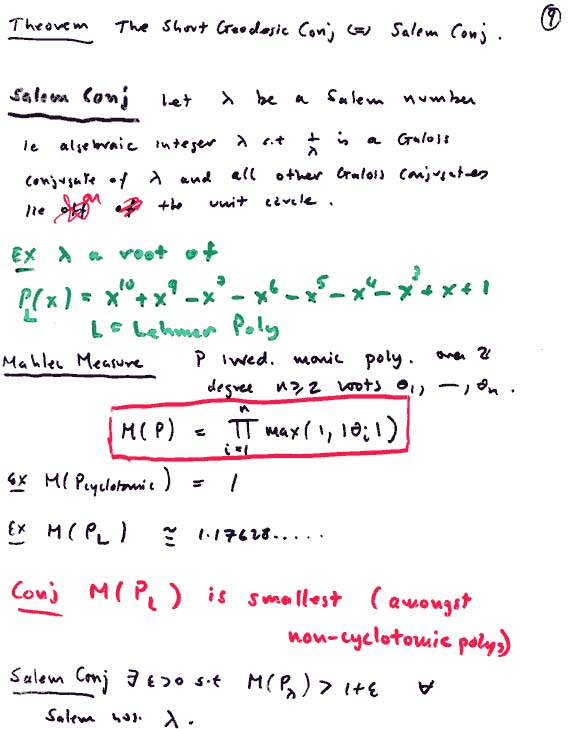 9
Theorem The Short Geodesic Conj ⟺ Salem Conj.
Salem Conj Let λ be a Salem number
ie algebraic integer λ s.t 1/λ is a Galois
conjugate of λ and all other Galois conjugates
lie on the unit circle.
Ex λ a root of
P_L(x) = x^10 + x^9 - x^7 - x^6 - x^5 - x^4 - x^3 + x + 1
L = Lehmer Poly
Mahler Measure P irred. monic poly. over ℤ
degree n ≥ 2 roots θ_1, —, θ_n.
M(P) = ∏_{i=1}^{n} max(1, |θ_i|)
Ex M(P_cyclotomic) = 1
Ex M(P_L) ≅ 1.17628.....
Conj M(P_L) is smallest (amongst
non-cyclotomic polys)
Salem Conj ∃ ε>0 s.t M(P_λ) > 1+ε ∀
Salem nos. λ.